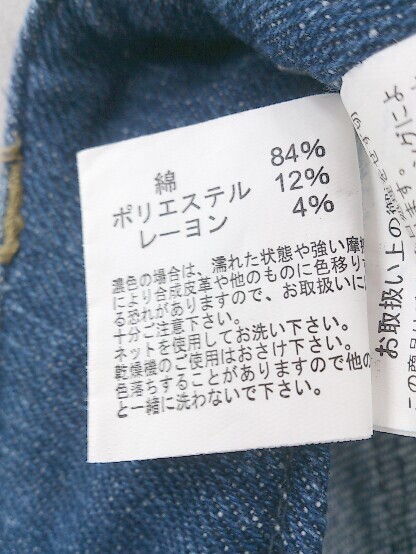 綿 84%
ポリエステル 12%
レーヨン 4%
濃色の場合は、濡れた状態や強い摩
により合成皮革や他のものに色移り
る恐れがありますので、お取扱いに
十分ご注意下さい。
ネットを使用してお洗い下さい。
乾燥機のご使用はおさけ下さい。
色落ちすることがありますので他の
と一緒に洗わないで下さい。
お取扱い上の
この商品